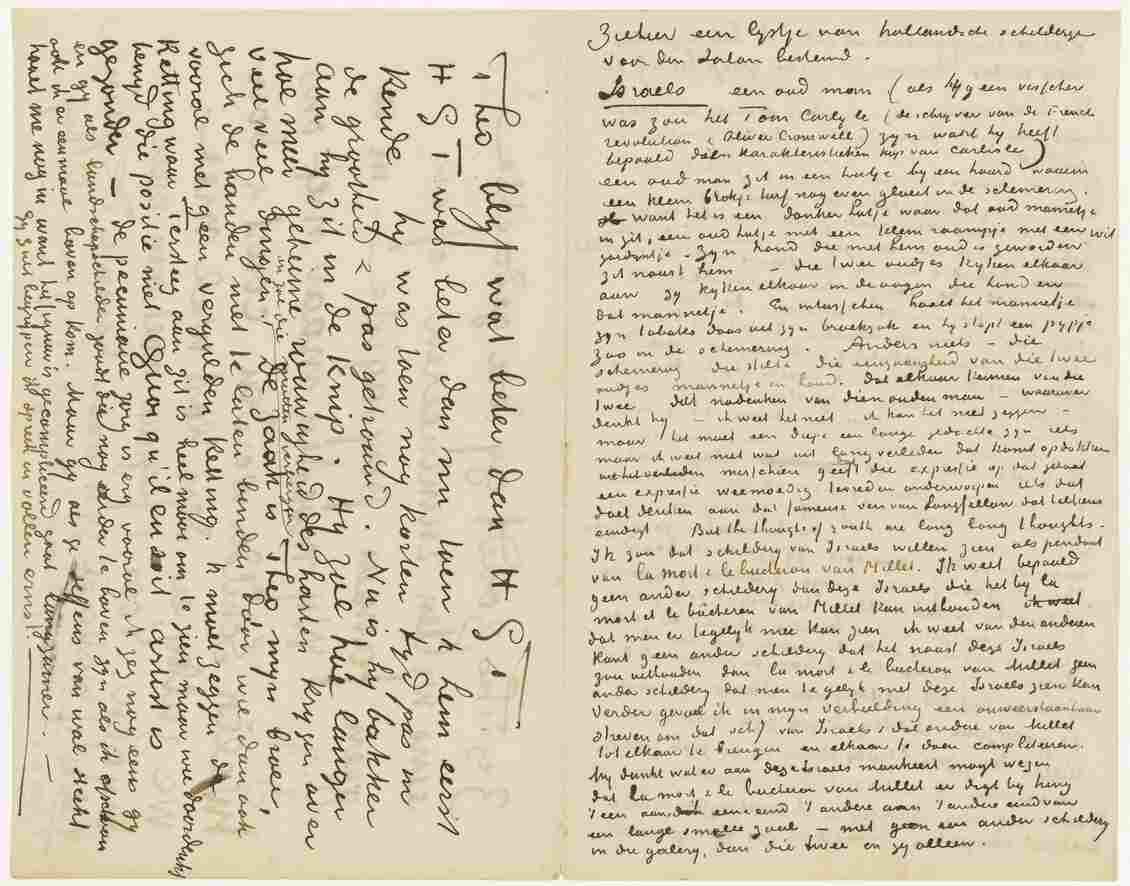 Theo blyf wat beter dan H G T
H G T was beter dan nu toen k hem eerst
kende hy was toen nog korten tyd pas in
de grootheid & pas getrouwd. Nu is hy bakker
aan hy zit in de knip. Hy zal hoe langer
hoe meer geheime rouwigheid des harten krygen over
veel veel dingen. De zaak is Theo myn broer,
zich de handen niet te laten binden door wie dan ook
vooral met geen vergulden ketting. k moet zeggen de
ketting waar Tersteeg aan zit is heel mooi om te zien maar wie doordenkt
benydt die positie niet Quoi qu'il en soit artist is
gezonder — de pecuniaire zorg is erg vooral ik zeg nog eens gy
en gy als landschapschilder zoudt die nog eerder te boven zyn als ik ofschoon
ook ik er eenmaal boven op kom. Maar gy als ge van wal steekt
haalt me nog in want het figuur is gecompliceerd gaat langzamer. —
Gy zult begrypen ik spreek in vollen ernst.
Ziehier een lystje van hollandsche schilderyen
voor den Salon bestemd.
Israels een oud man (als hy geen visscher
was zou het Tom Carlyle (de schryver van de French
revolution & Oliver Cromwell) zyn want hy heeft
bepaald dien karakteristieken kop van Carlisle)
een oud man zit in een hutje by een haard waarin
een klein brokje turf nog even gloeit in de schemering.
want het is een donker hutje waar dat oud mannetje
in zit, een oud hutje met een klein raampje met een wit
gordyntje. Zyn hond die met hem oud is geworden
zit naast hem — die twee oudjes kyken elkaar
aan zy kyken elkaar in de oogen die hond en
dat mannetje. En intusschen haalt het mannetje
zyn tabaksdoos uit zyn broekzak en hy stopt een pypje
zoo in de schemering. Anders niets — die
schemering die stilte die eenzaamheid van die twee
oudjes mannetje en hond. Dat elkaar kennen van die
twee dat nadenken van dien ouden man — waarover
denkt hy — ik weet het niet — ik kan het niet zeggen —
maar het moet een diepe een lange gedachte zyn iets
maar ik weet niet wat uit lang verleden dat komt opdoiken
misschien geeft die expressie op dat gelaat
een expressie weemoedig tevreden onderworpen iets dat
doet denken aan dat fameuse vers van Longfellow dat telkens
eindigt But the thoughts of youth are long long thoughts.
Ik zou dat schildery van Israels willen zien als pendant
van la mort & le bucheron van Millet. Ik weet bepaald
geen ander schildery dan deze Israels die het by la
mort et le bûcheron van Millet kan uithouden
dat men er tegelyk mee kan zien ik weet van den anderen
kant geen ander schildery dat het naast deze Israels
zou uithouden dan la mort & le bucheron van Millet geen
ander schildery dat men te gelyk met deze Israels zien kan
Verder gevoel ik in myn verbeelding een onweerstaanbaar
streven om dat sch/ van Israels & dat andere van Millet
tot elkaar te brengen en elkaar te doen completeeren.
My dunkt wat er aan deze Israels mankeert mogt wezen
dat la mort & le bucheron van Millet er digt by hing
't een aan een eind 't andere aan 't andere eind van
een lange smalle zaal — met geen een ander schildery
in die galery, dan die twee en zy alleen.